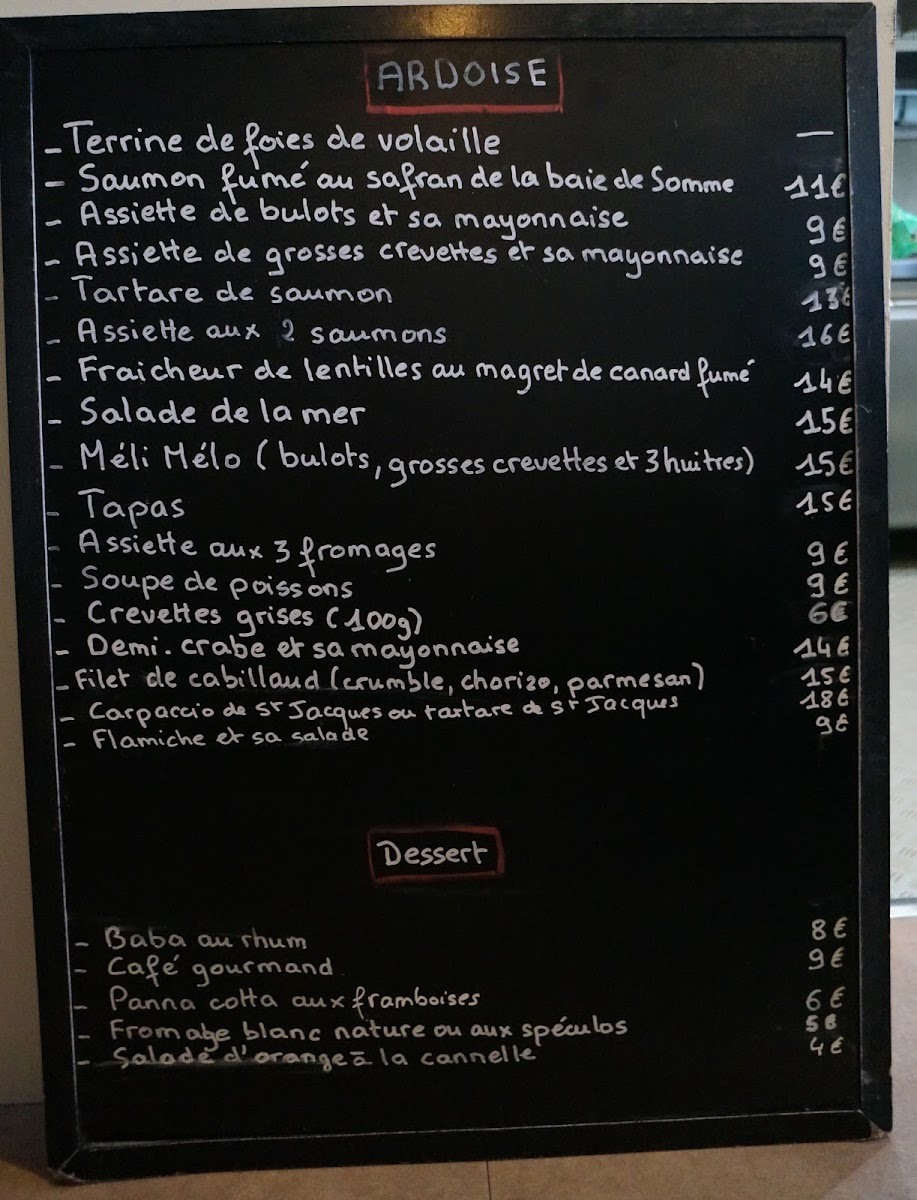 ARDOISE
- Terrine de foies de volaille —
- Saumon fumé au safran de la baie de Somme 11€
- Assiette de bulots et sa mayonnaise 9€
- Assiette de grosses crevettes et sa mayonnaise 9€
- Tartare de saumon 13€
- Assiette aux 2 saumons 16€
- Fraicheur de lentilles au magret de canard fumé 14€
- Salade de la mer 15€
- Méli Mélo (bulots, grosses crevettes et 3 huitres) 15€
- Tapas 15€
- Assiette aux 3 fromages 9€
- Soupe de poissons 9€
- Crevettes grises (100g) 6€
- Demi-crabe et sa mayonnaise 14€
- Filet de cabillaud (crumble, chorizo, parmesan) 15€
- Carpaccio de St Jacques ou tartare de St Jacques 18€
- Flamiche et sa salade 9€
Dessert
- Baba au rhum 8€
- Café gourmand 9€
- Panna cotta aux framboises 6€
- Fromage blanc nature ou aux spéculos 5€
- Salade d'orange à la cannelle 4€